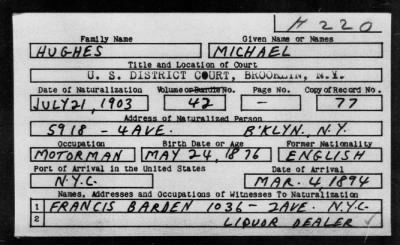 H 220
Family Name Given Name or Names
HUGHES MICHAEL
Title and Location of Court
U. S. DISTRICT COURT, BROOKLYN, N.Y.
Date of Naturalization Volume or Bundle No. Page No. Copy of Record No.
JULY 21, 1903 42 - 77
Address of Naturalized Person
5918 - 4 AVE. B'KLYN., N.Y.
Occupation Birth Date or Age Former Nationality
MOTORMAN MAY 24, 1876 ENGLISH
Port of Arrival in the United States Date of Arrival
N.Y.C. MAR. 4 1894
Names, Addresses and Occupations of Witnesses To Naturalization
1 FRANCIS BARDEN 1036 - 2 AVE. N.Y.C.
2 LIQUOR DEALER